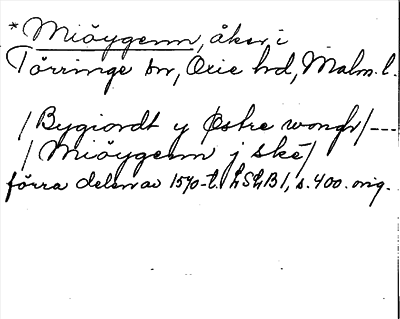 *Miöygenn, åker i
Törringe sn, Oxie hd, Malm. l.
/Bygiordt y Østre wongh/---
/Miöygenn j ske/
förra delen av 1570-t. LSLB1, s. 400. orig.